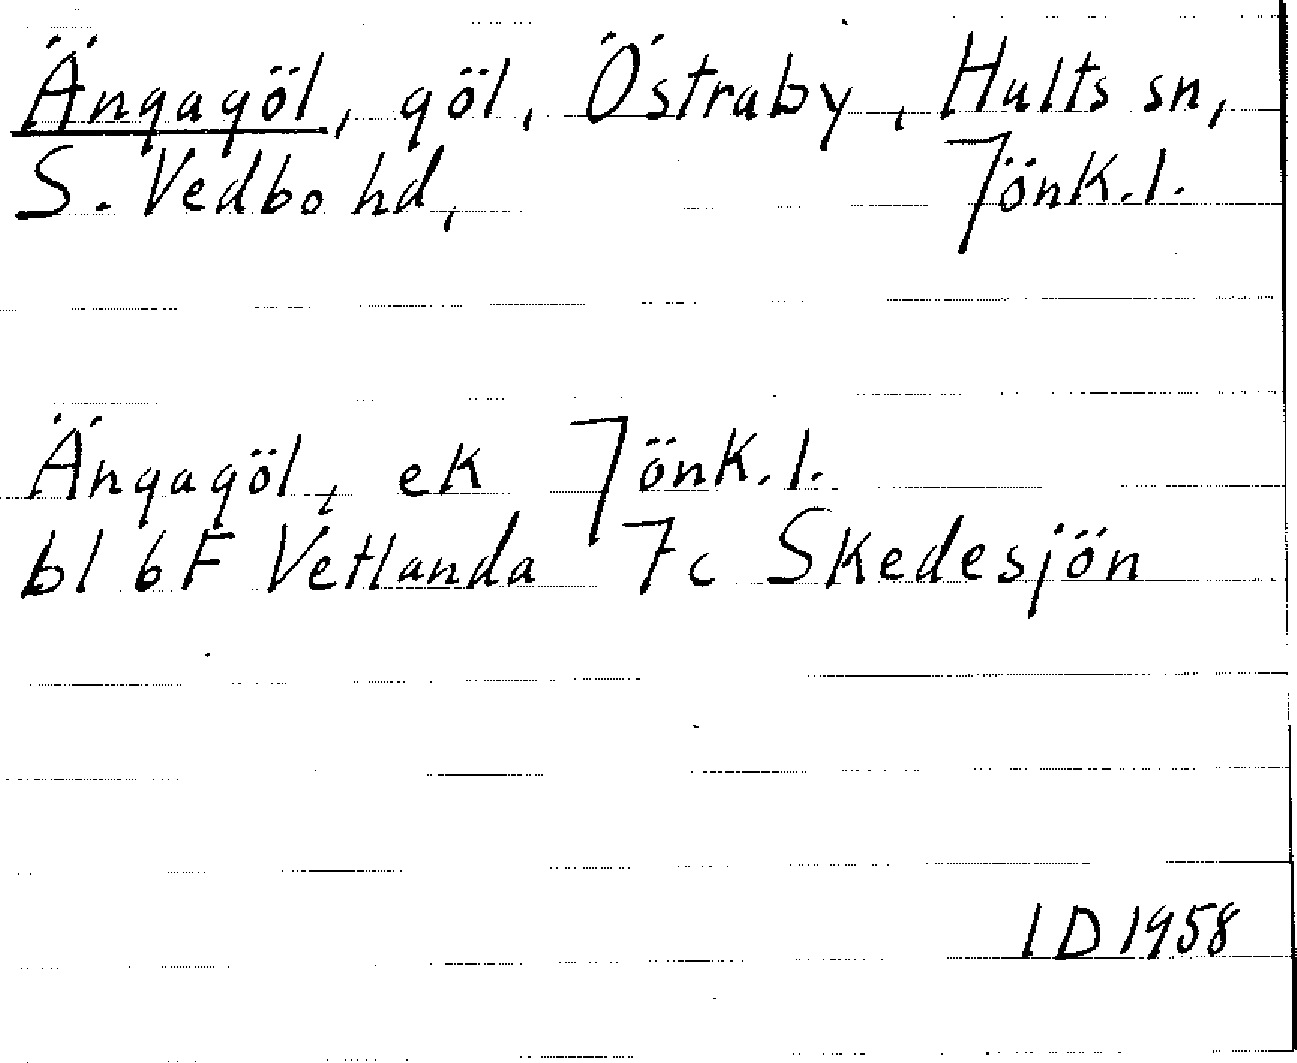 Ängagöl, göl, Östraby, Hults sn,
S. Vedbo hd, Jönk.l.
Ängagöl, ek Jönk.l.
bl 6F Vetlanda 7c Skedesjön
ID 1958